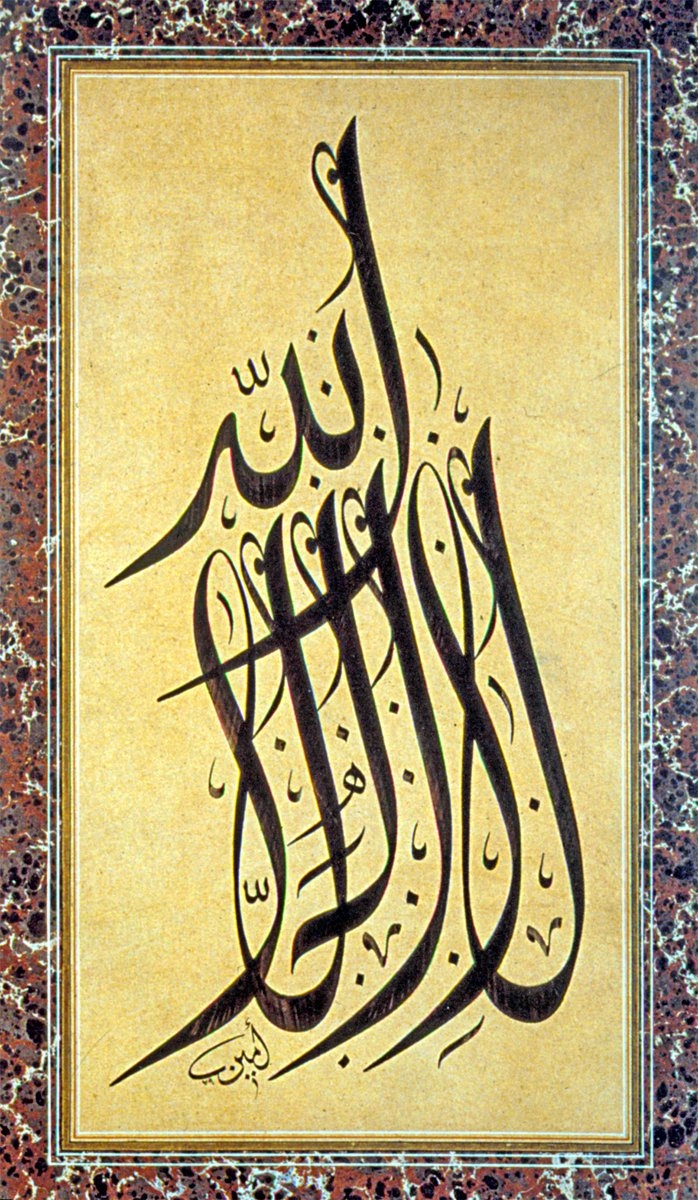 لا إله إلا الله
أمين